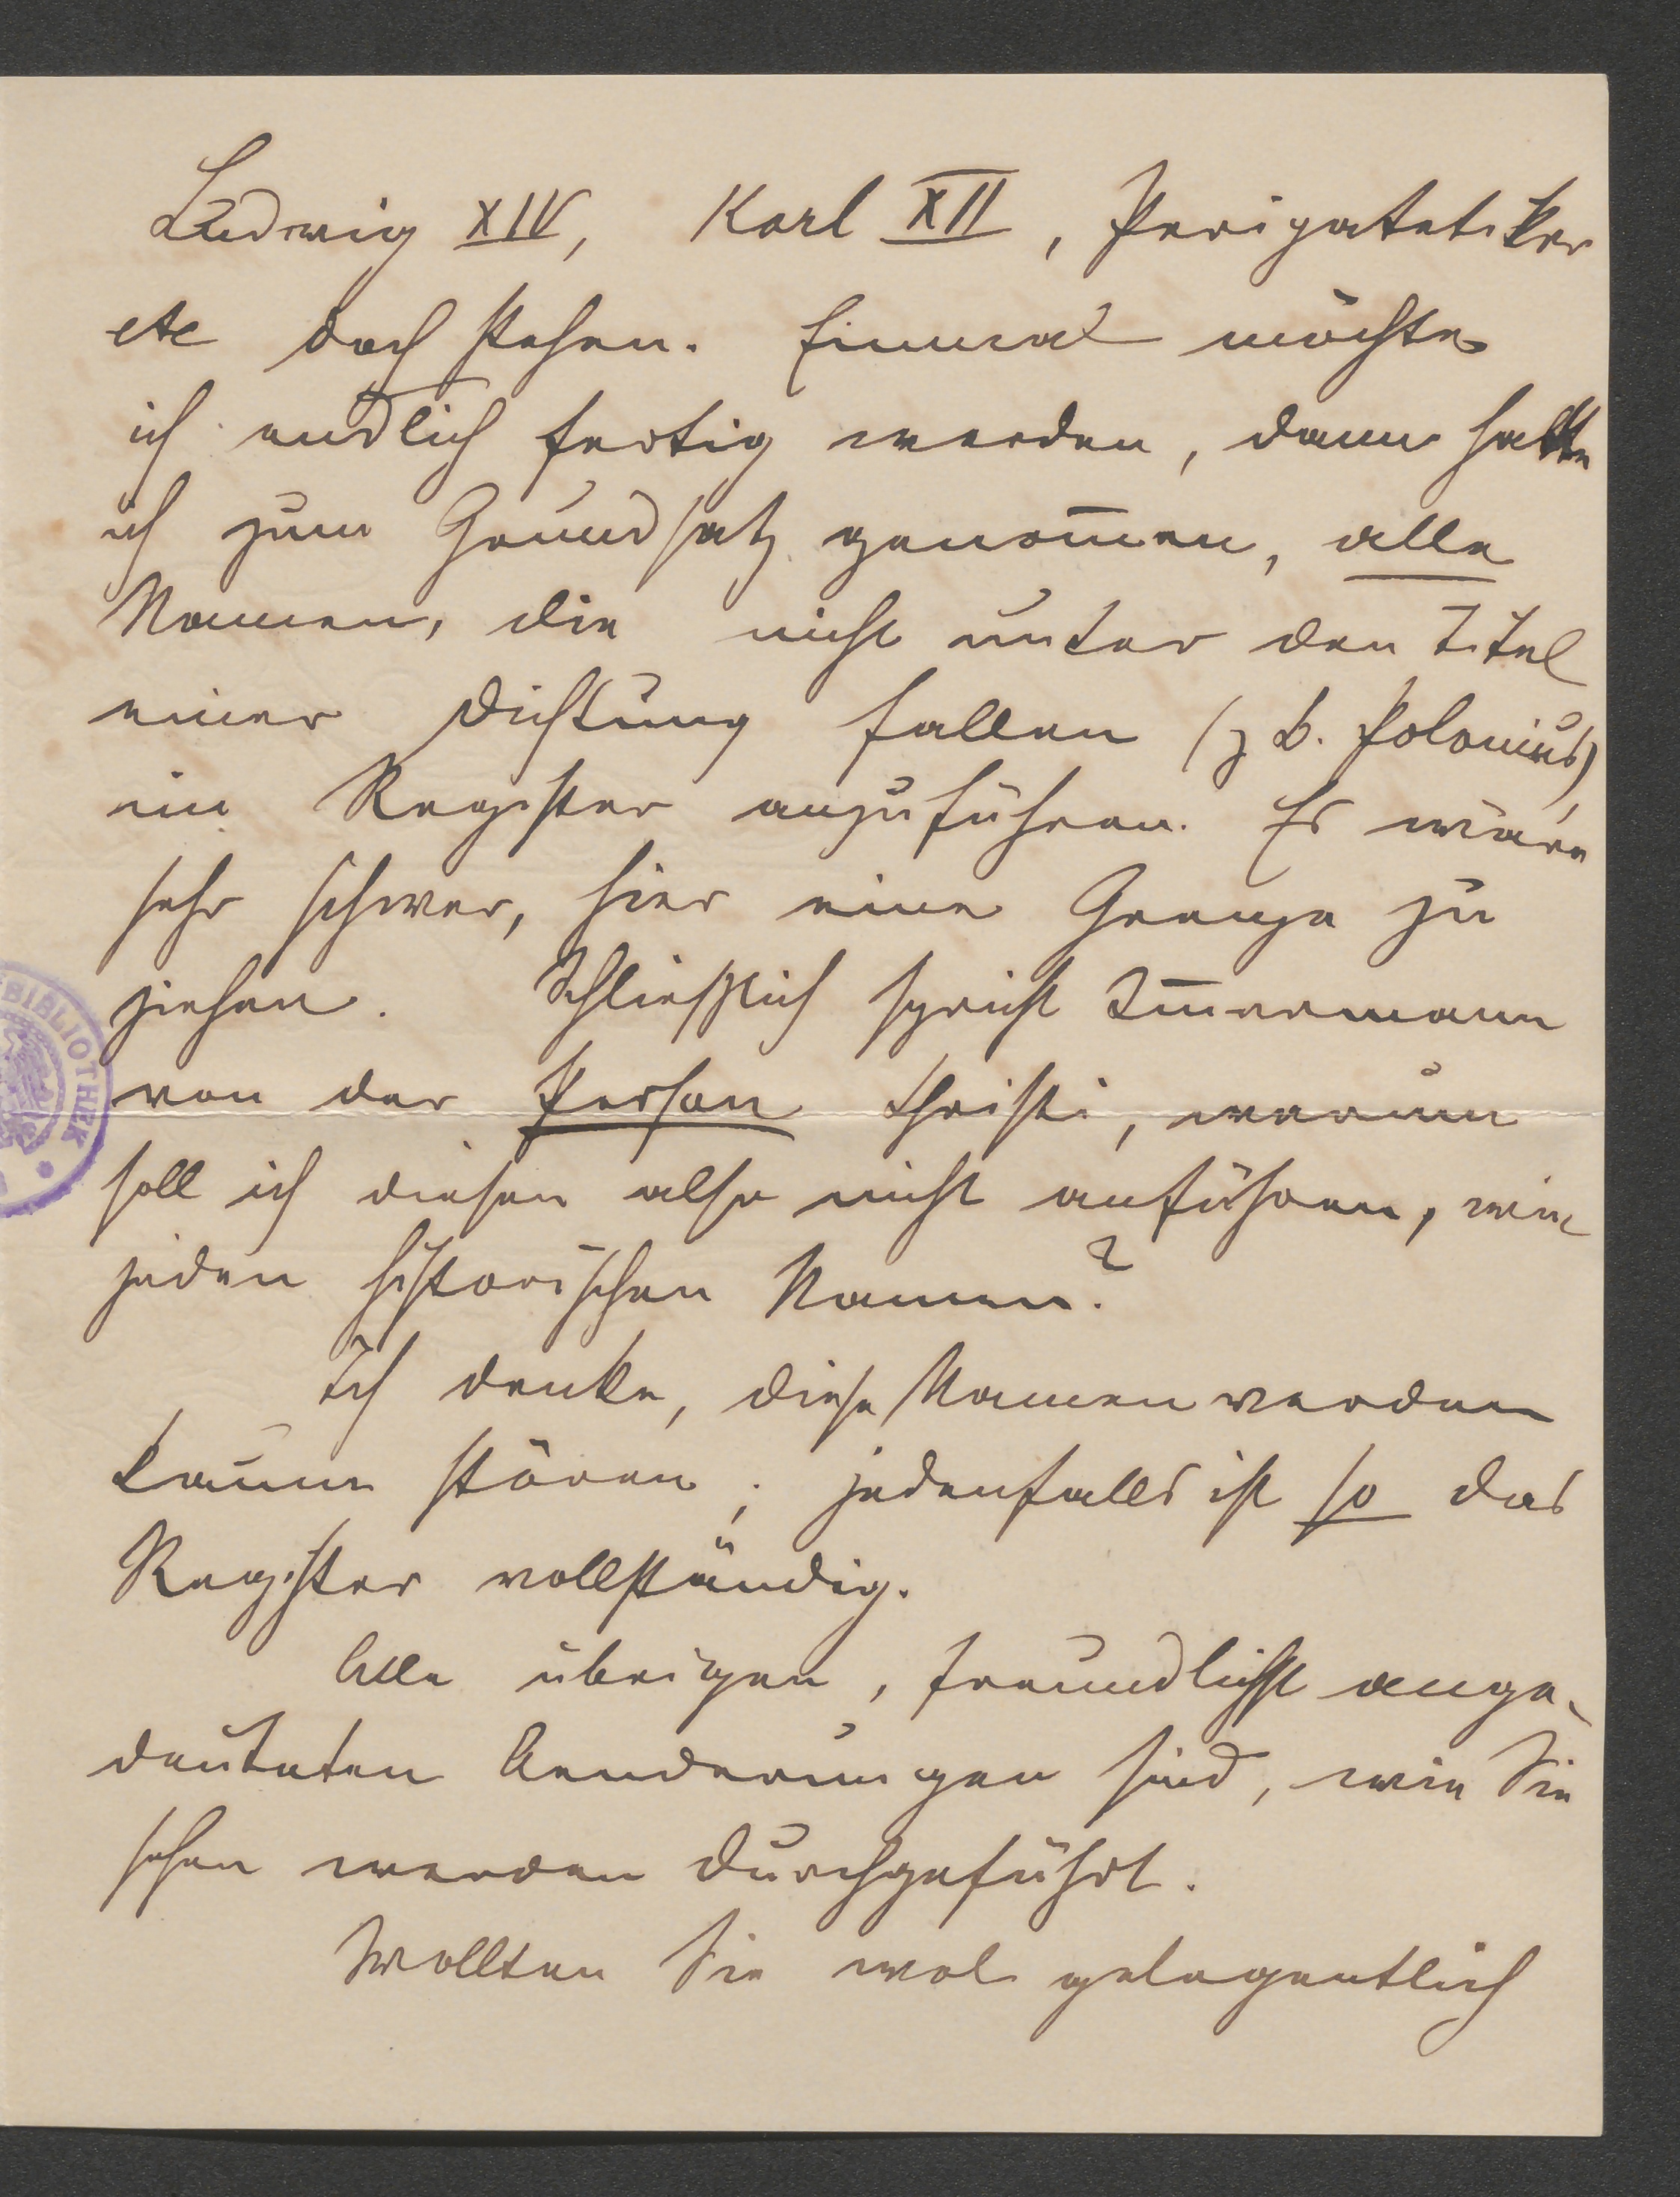 Ludwig XIV, Karl XII, Peripatetiker
etc doch stehen. Einmal möchte
ich endlich fertig werden, dann hatte
ich zum Grundsatz genom̅en, alle
Namen, die nicht unter den Titel
einer Dichtung fallen (z b. Polonius)
im Register anzuführen. Es wäre
sehr schwer, hier eine Grenze zu
ziehen. Schließlich spricht Im̅ermann
von der Person Christi, warum
soll ich diesen also nicht anführen, wie
jeden historischen Namen?
Ich denke, diese Namen werden
kaum stören; jedenfalls ist so das
Register vollständig.
Alle übrigen, freundlichst ange-
deuteten Aenderungen sind, wie Sie
sehen werden durchgeführt.
Wollten Sie wol gelegentlich
BIBLIOTHEK